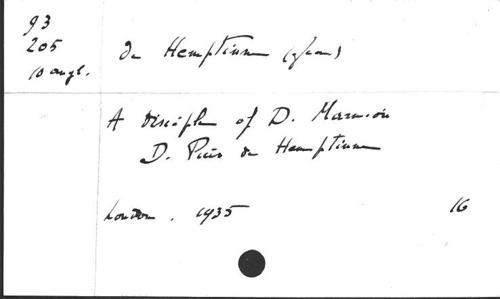 93
205
10 angl.
de Hemptinne (Jean)
A Disciple of D. Marmion
D. Pius de Hemptinne
London. 1935
16